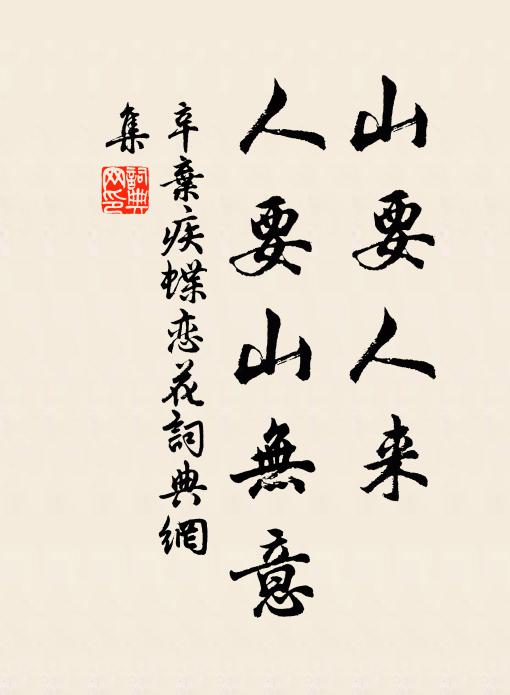 山要人来
人要山無意
辛棄疾蝶恋花詞典網
集
詞典网印